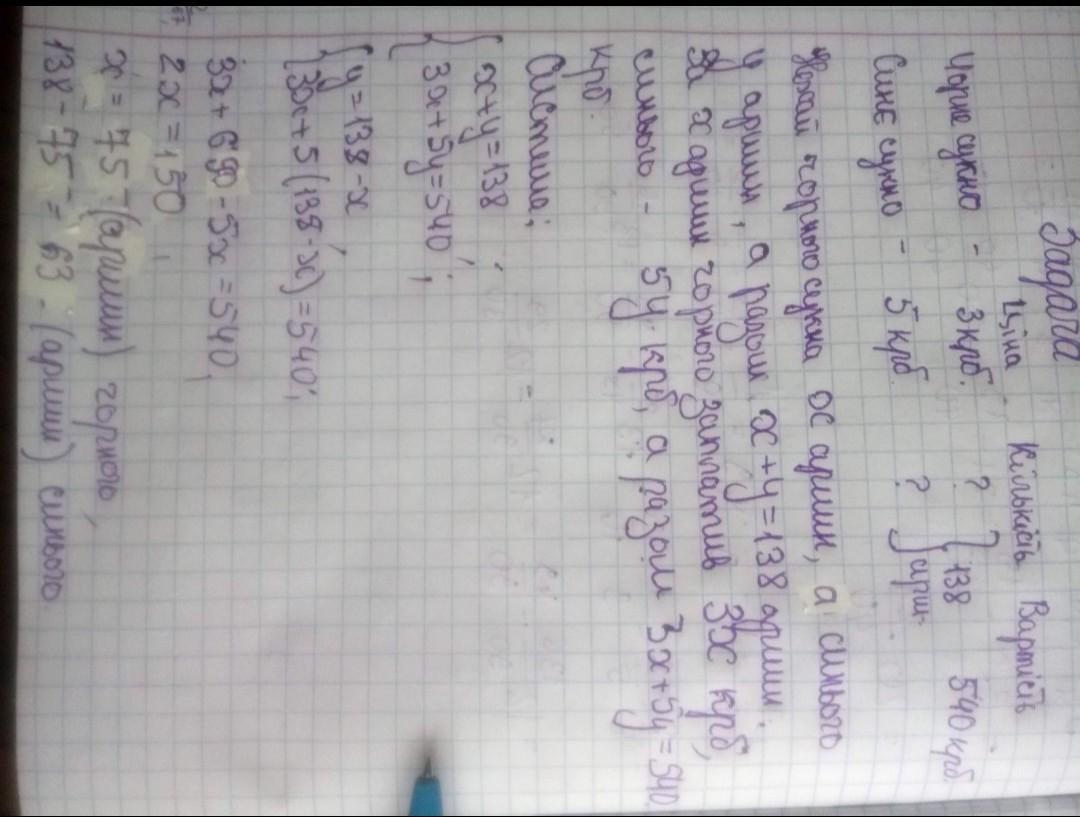 Задача
Ціна Кількість Вартість
Чорне сукно - 3 крб. ? } 138 540 крб.
Синє сукно - 5 крб. ? арш.
Нехай чорного сукна є x аршин, а синього
y аршин, а разом x+y=138 аршин.
За x аршин чорного заплатив 3x крб,
синього - 5y крб, а разом 3x+5y=540
крб.
Система;
{ x+y=138
3x+5y=540;
{ y=138-x
3x+5(138-x)=540;
3x+690-5x=540,
2x=150,
x=75 (аршин) чорного,
138-75=63-(аршин) синього